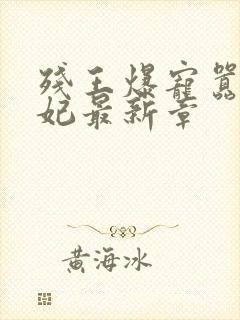 残王爆宠嚣
妃最新章
黄海冰